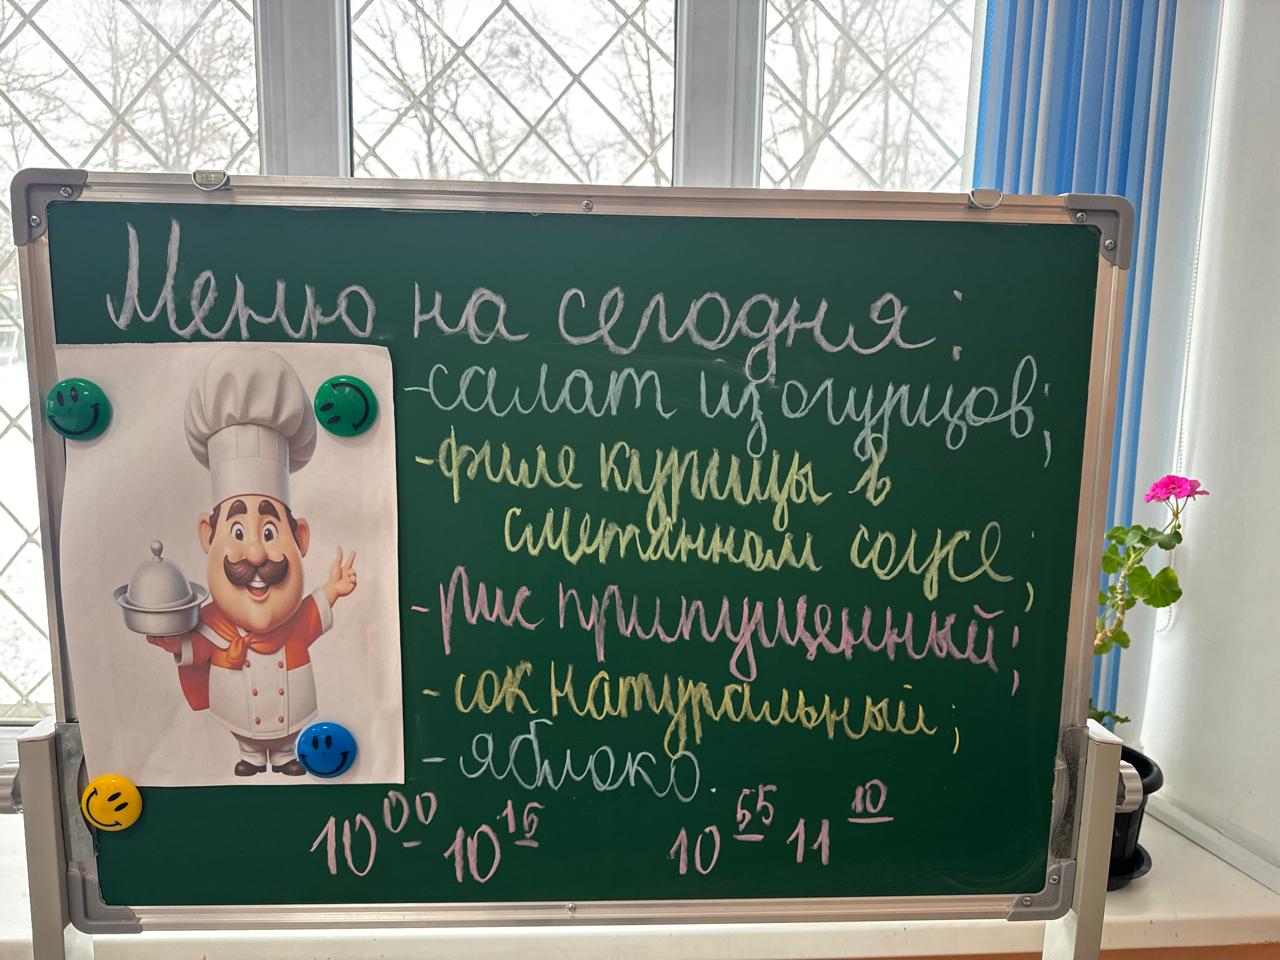 Меню на сегодня:
-салат из огурцов;
-филе курицы в
сметанном соусе;
-рис припущенный;
-сок натуральный;
-яблоко.
10 00 10 15 10 55 11 10